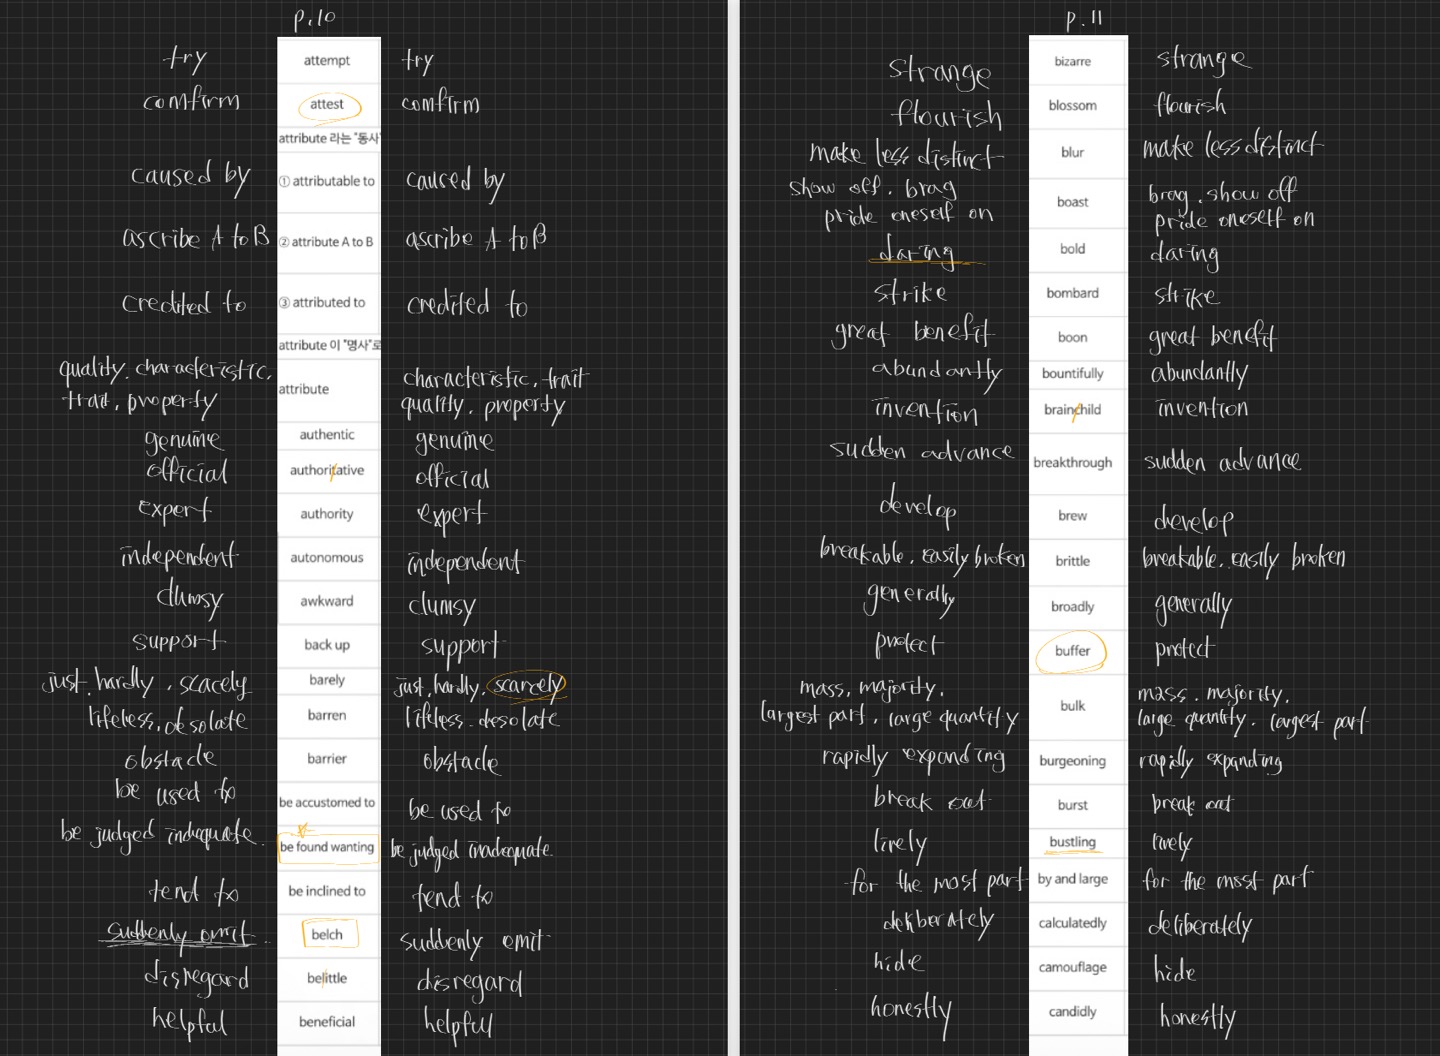 p.10
try attempt try
comfirm attest comfirm
attribute 라는 "동사"
caused by ① attributable to caused by
ascribe A to B ② attribute A to B ascribe A to B
credited to ③ attributed to credited to
attribute 이 "명사"로
quality. characteristic. attribute characteristic. trait
trait. property quality. property
genuine authentic genuine
official authoritative official
expert authority expert
independent autonomous independent
clumsy awkward clumsy
support back up support
just. hardly. scacely barely just. hardly. scarcely
lifeless. desolate barren lifeless. desolate
obstacle barrier obstacle
be used to be accustomed to be used to
be judged inadequate. be found wanting be judged inadequate.
tend to be inclined to tend to
suddenly omit. belch suddenly emit
disregard belittle disregard
helpful beneficial helpful
p.11
strange bizarre strange
flourish blossom flourish
make less distinct blur make less distinct
show off. brag boast brag. show off
pride oneself on pride oneself on
daring bold daring
strike bombard strike
great benefit boon great benefit
abundantly bountifully abundantly
invention brainchild invention
sudden advance breakthrough sudden advance
develop brew develop
breakable. easily broken brittle breakable. easily broken
generally broadly generally
protect buffer protect
mass. majority. bulk mass. majority.
largest part. large quantity large quantity. largest part
rapidly expanding burgeoning rapidly expanding
break out burst break out
lively bustling lively
for the most part by and large for the most part
deliberately calculatedly deliberately
hide camouflage hide
honestly candidly honestly